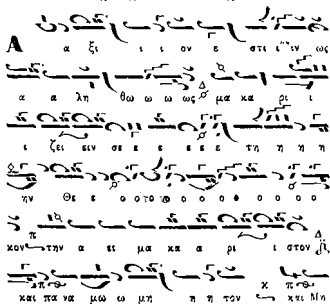 Α α ξι ι ι ον ε στι ι ιν ως
α α λη θω ω ω ως μα κα ρι ι
ι ζειειν σε ε ε ε ε ε τη η η η
ην Θε ε ο ο το ο ο ο ο ο ο ο ο
κον την α ει μα κα α ρι ι στον
και πα να μω ω μη η η τον και Μη